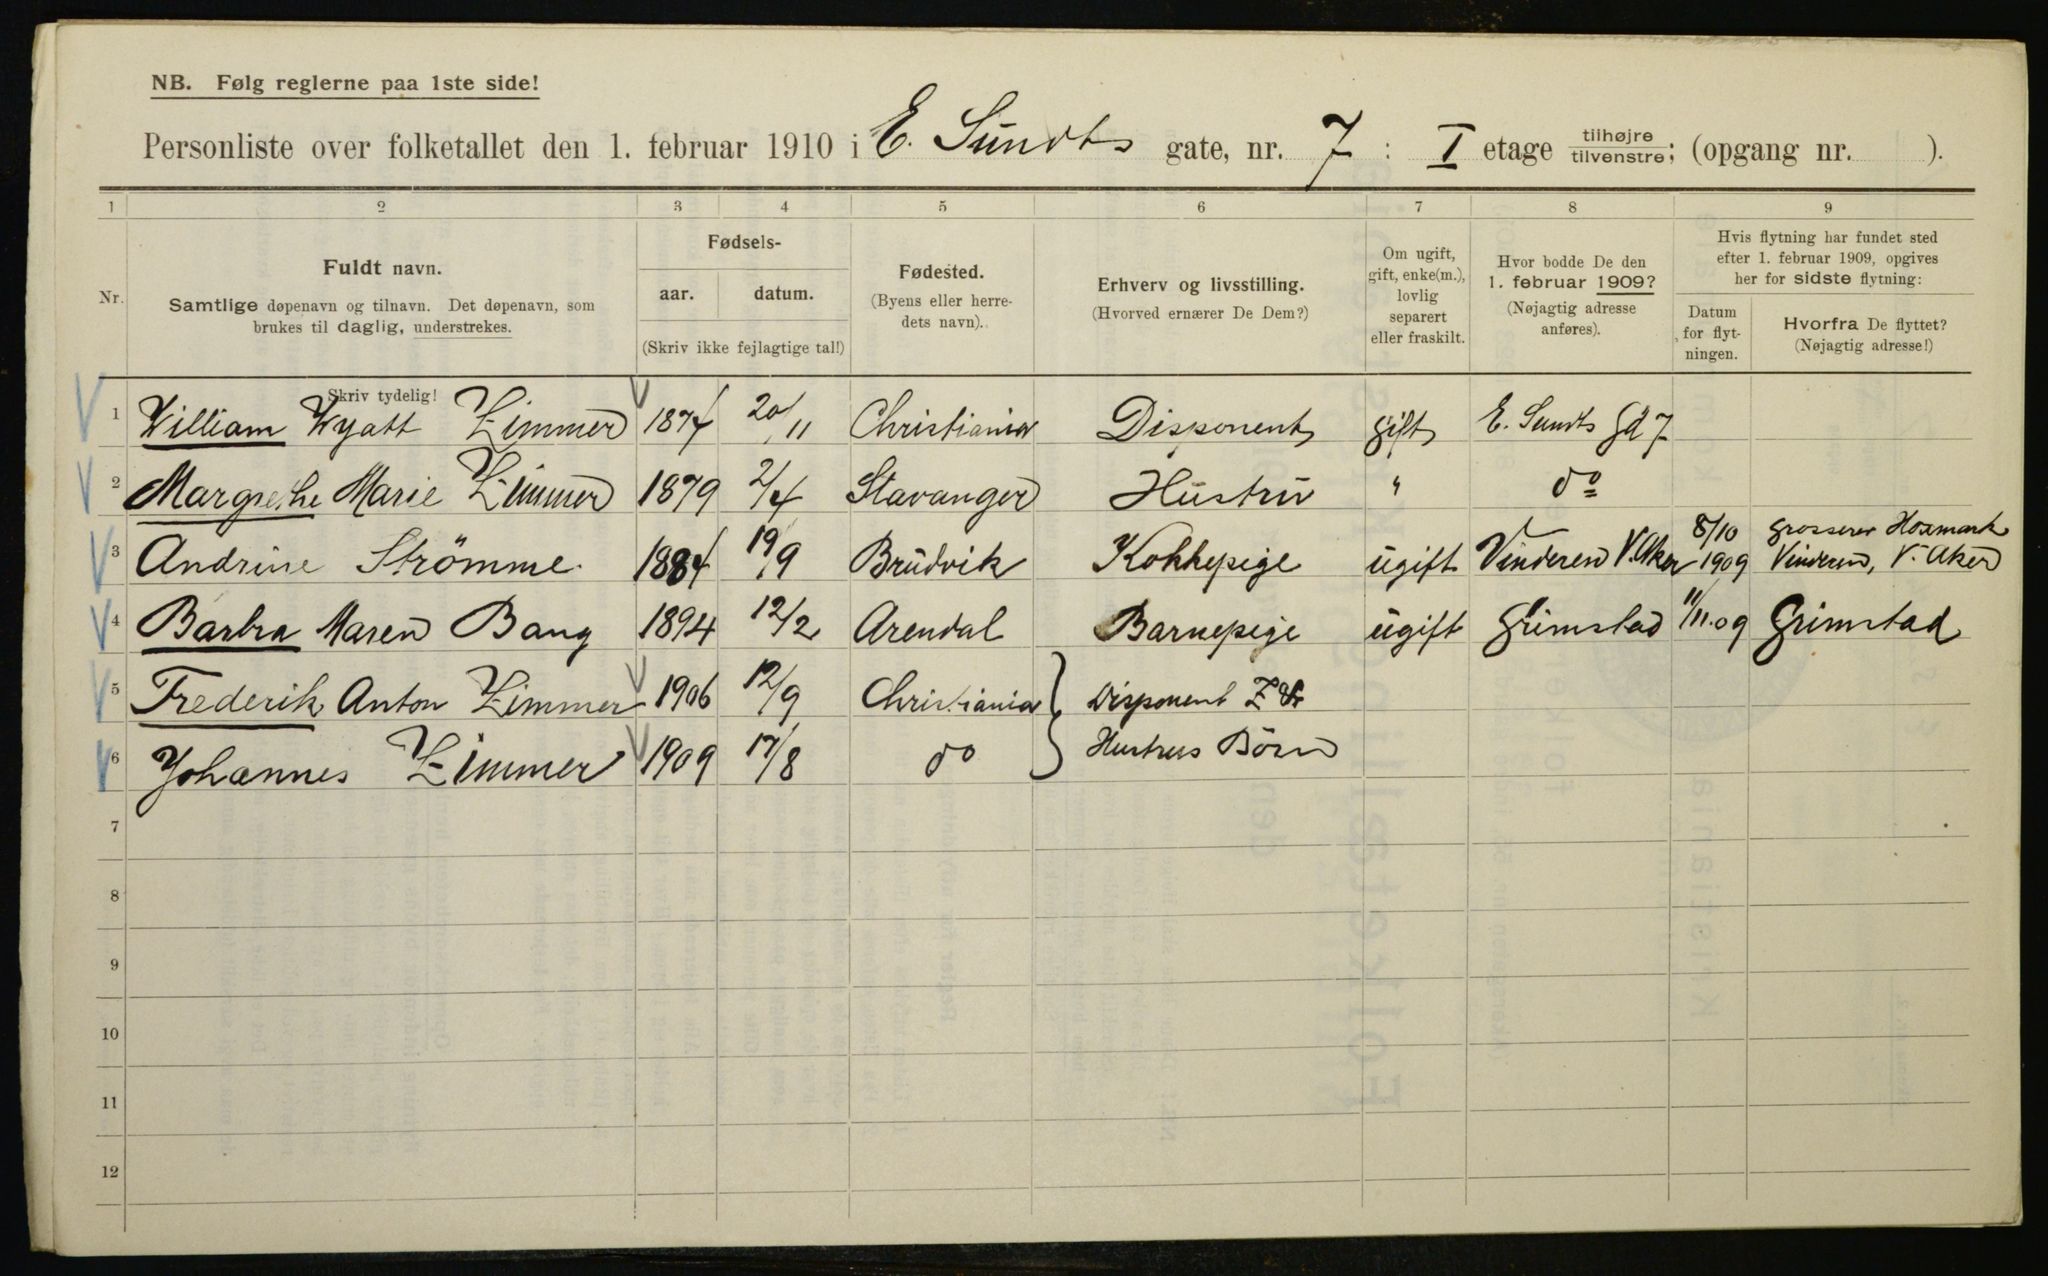 NB. Følg reglerne paa 1ste side!
Personliste over folketallet den 1. februar 1910 i E. Sundts gate, nr. 7 : I etage tilhøjre tilvenstre; (opgang nr. ).
1 2 3 4 5 6 7 8 9
Nr.
Fuldt navn.
Samtlige døpenavn og tilnavn. Det døpenavn, som
brukes til daglig, understrekes.
Skriv tydelig!
Fødsels-
aar. datum.
(Skriv ikke fejlagtige tal!)
Fødested.
(Byens eller herre-
dets navn).
Erhverv og livsstilling.
(Hvorved ernærer De Dem?)
Om ugift,
gift, enke(m.),
lovlig
separert
eller fraskilt.
Hvor bodde De den
1. februar 1909?
(Nøjagtig adresse
anføres).
Hvis flytning har fundet sted
efter 1. februar 1909, opgives
her for sidste flytning:
Datum
for flyt-
ningen.
Hvorfra De flyttet?
(Nøjagtig adresse!)
1 William Wyatt Zimmer 1874 20/11 Christiania Disponent gift E. Sundts gd 7
2 Margrethe Marie Zimmer 1879 2/4 Stavanger Hustru " do
3 Andrine Strömme. 1884 19/9 Brudvik Kokkepige ugift Vinderen V. Aker 8/10 1909 grosserer Hoxmark Vinderen, V. Aker
4 Barbra Maren Bang 1894 12/2 Arendal Barnepige ugift Grimstad 11/11.09 Grimstad
5 Frederik Anton Zimmer 1906 12/9 Christiania Disponent Z &
6 Johannes Zimmer 1909 17/8 do Hustrus Börn
7
8
9
10
11
12